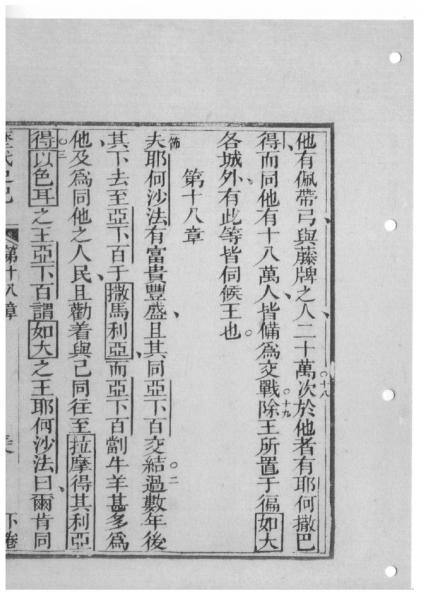 他有佩帶弓與藤牌之人二十萬○十八次於他者有耶何撒巴
得而同他有十八萬人皆備為交戰○十九除王所置于徧如大
各城外有此等皆伺候王也
第十八章
夫耶何沙法有富貴豐盛且其同亞下百交結○二過數年後
其下去至亞下百于撒馬利亞而亞下百劏牛羊甚多為
他及為同他之人民且勸着與己同往至拉摩得其利亞
○三得以色耳之王亞下百謂如大之王耶何沙法曰爾肯同
第十八章 下卷